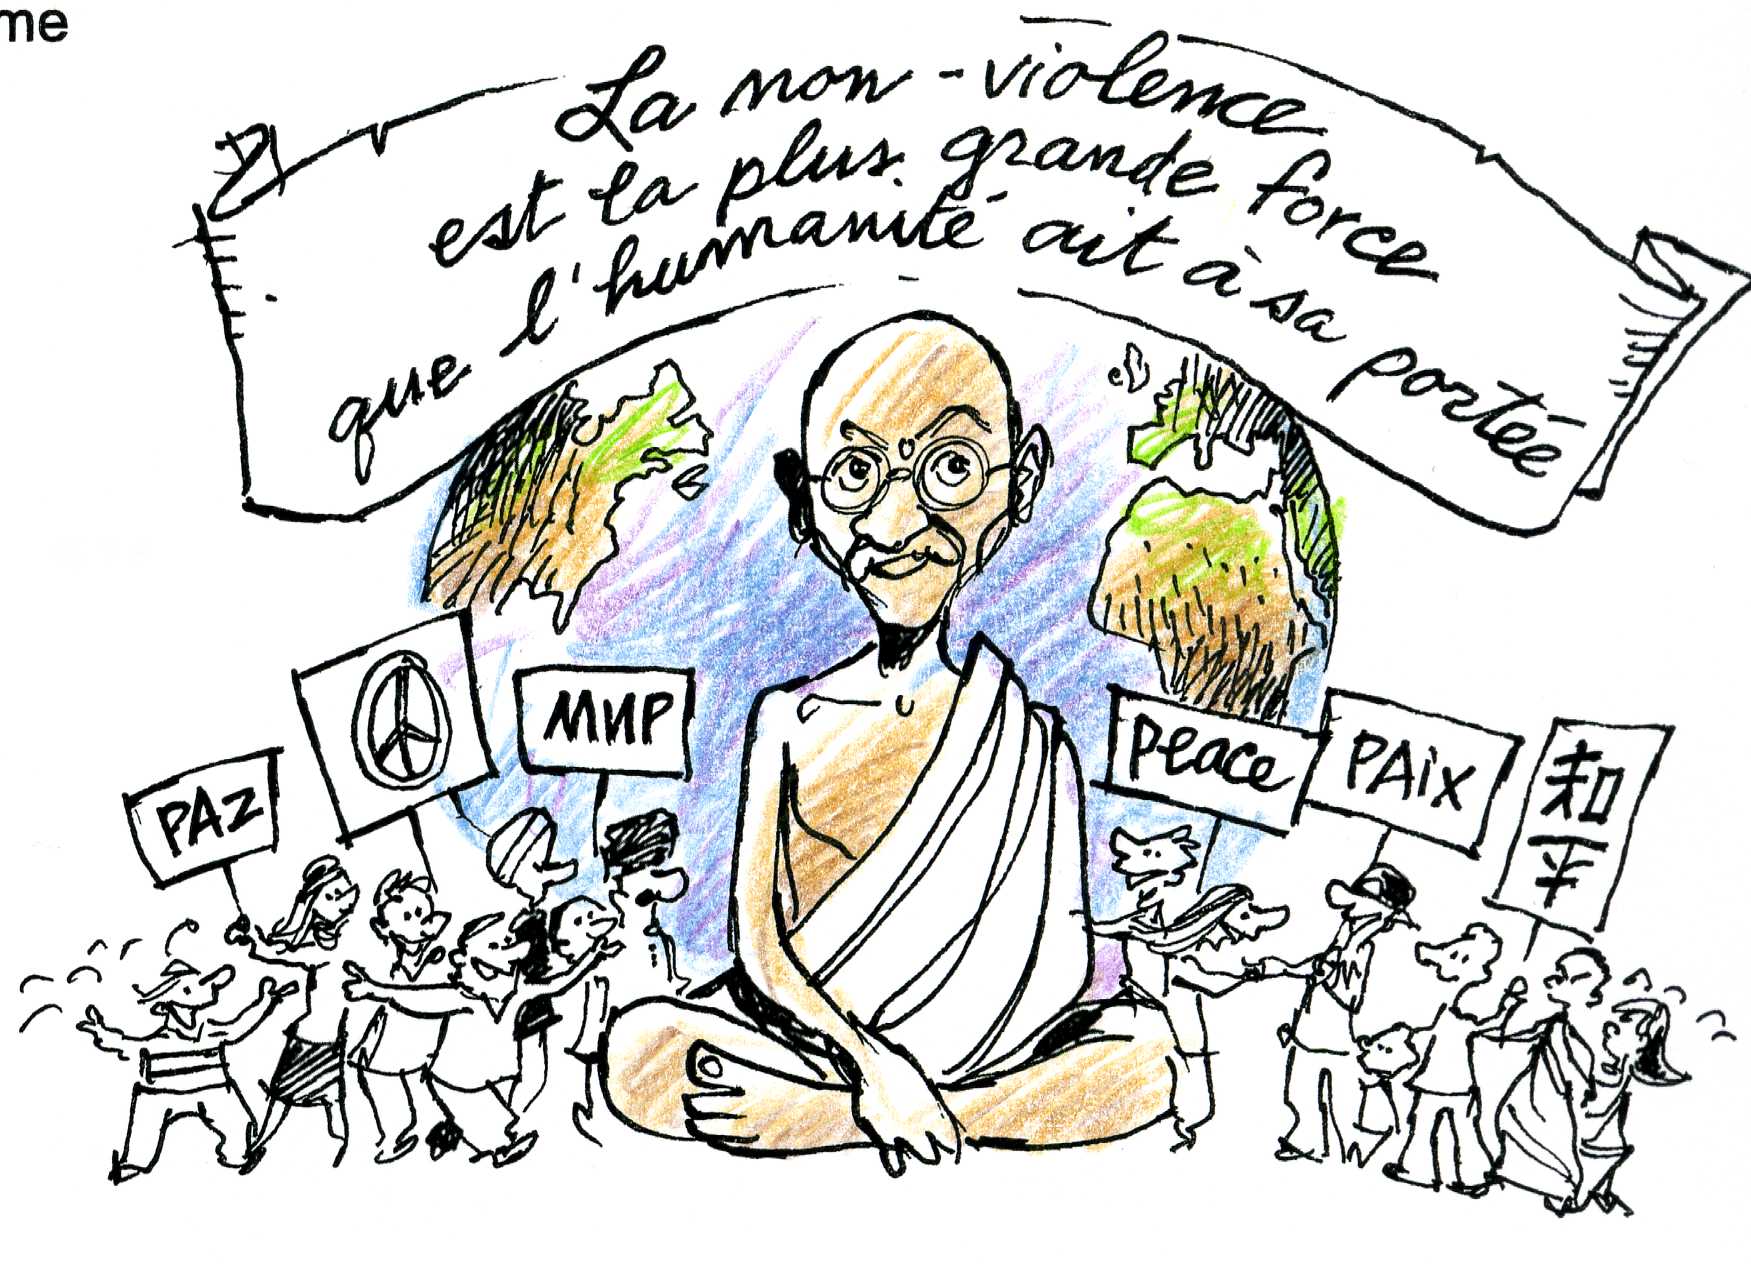 me
La non-violence
est la plus grande force
que l'humanité ait à sa portée
PAZ
МИР
Peace
PAix
和
平